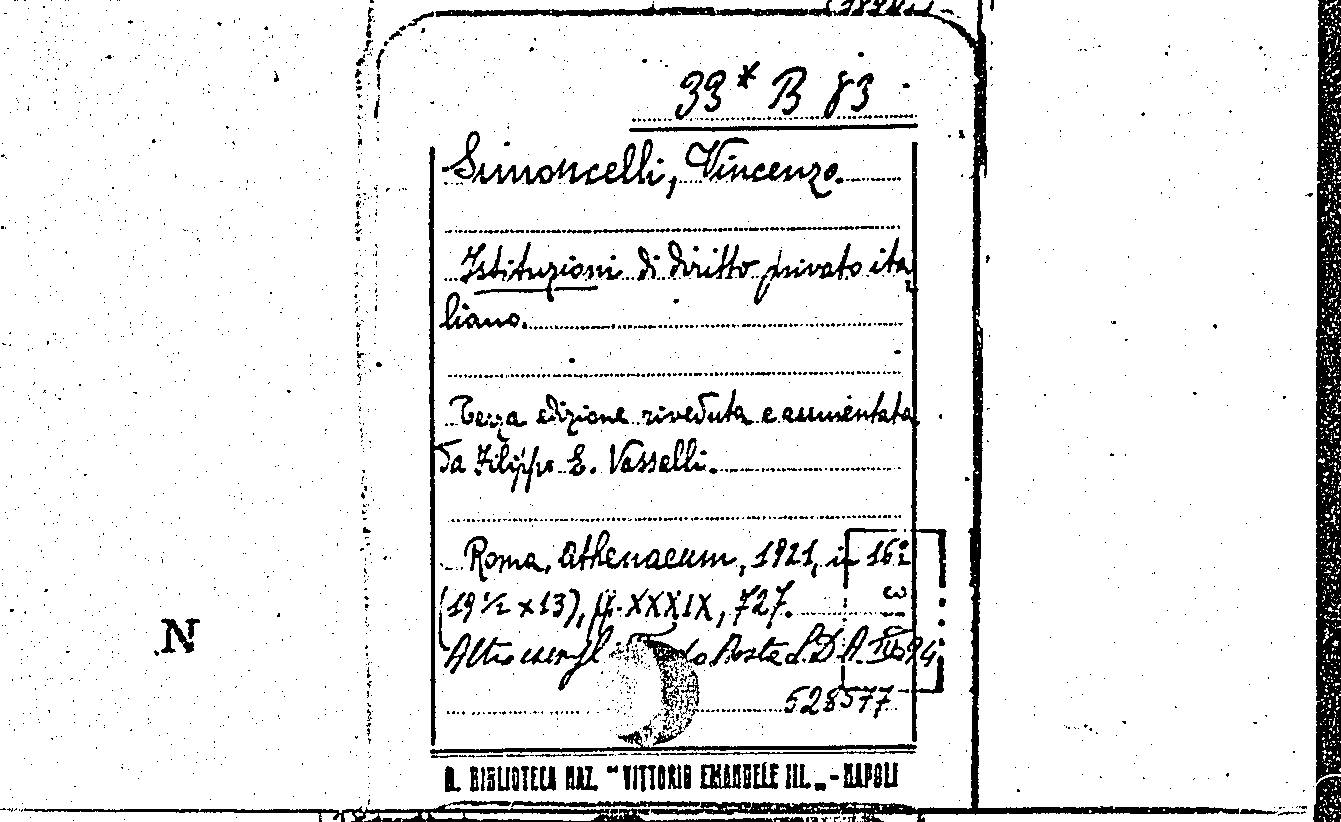 33* B 83
Simoncelli, Vincenzo.
Istituzioni di diritto privato ita
liano.
Terza edizione riveduta e aumentata
da Filippo E. Vassalli.
Roma, Athenaeum, 1921, in 16°
(19 ½ x 13), pp. XXXIX, 727.
3
Altro esempl
528577
N
R. BIBLIOTECA NAZ. "VITTORIO EMANUELE III." - NAPOLI